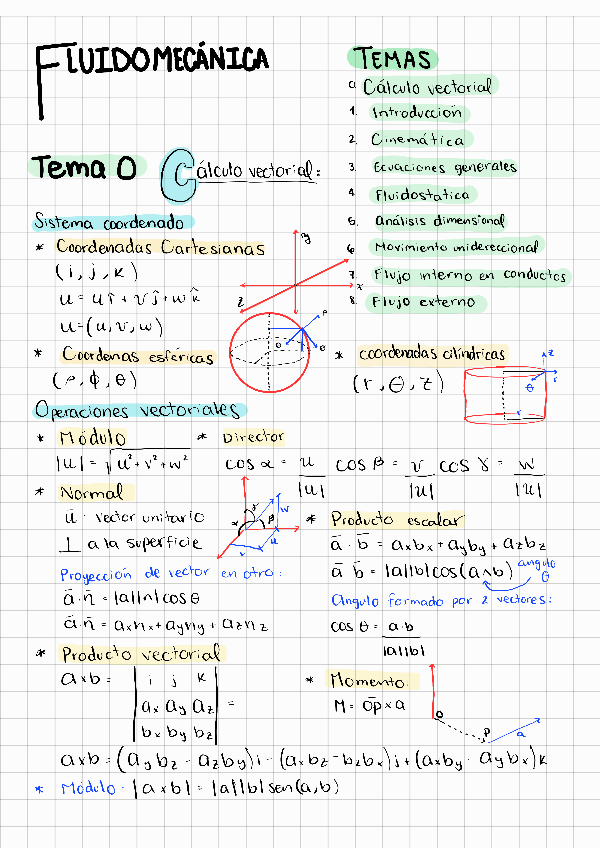 FLUIDOMECÁNICA
TEMAS
0. Cálculo vectorial
1. Introducción
2. Cinemática
3. Ecuaciones generales
4. Fluidostatica
5. Análisis dimensional
6. Movimiento unidereccional
7. Flujo interno en conductos
8. Flujo externo
Tema 0 Cálculo vectorial:
Sistema coordenado
* Coordenadas Cartesianas
(i, j, k)
u = u î + v ĵ + w k̂
u = (u, v, w)
y
x
z
* Coordenas esféricas
(ρ, ϕ, θ)
ρ
θ
* coordenadas cilíndricas
(r, θ, z)
z
r
θ
r
Operaciones vectoriales
* Módulo
|u| = √u² + v² + w²
* Director
cos α = u/|u| cos β = v/|u| cos γ = w/|u|
* Normal
ū · vector unitario
⊥ a la superficie
α γ β w
v u
Proyección de vector en otro:
ā · n̄ = |a||n| cos θ
ā · n̄ = axnx + ayny + aznz
* Producto escalar
ā · b̄ = axbx + ayby + azbz
ā b̄ = |a||b| cos(a∧b) angulo θ
Angulo formado por 2 vectores:
cos θ = a·b/|a||b|
* Producto vectorial
a×b = | i j k |
| ax ay az | =
| bx by bz |
* Momento:
M = o̅p̅ × a
O
P
a
a×b = (aybz - azby)i - (axbz - bzbx)j + (axby - aybx)k
* Módulo · |a×b| = |a||b| sen(a,b)